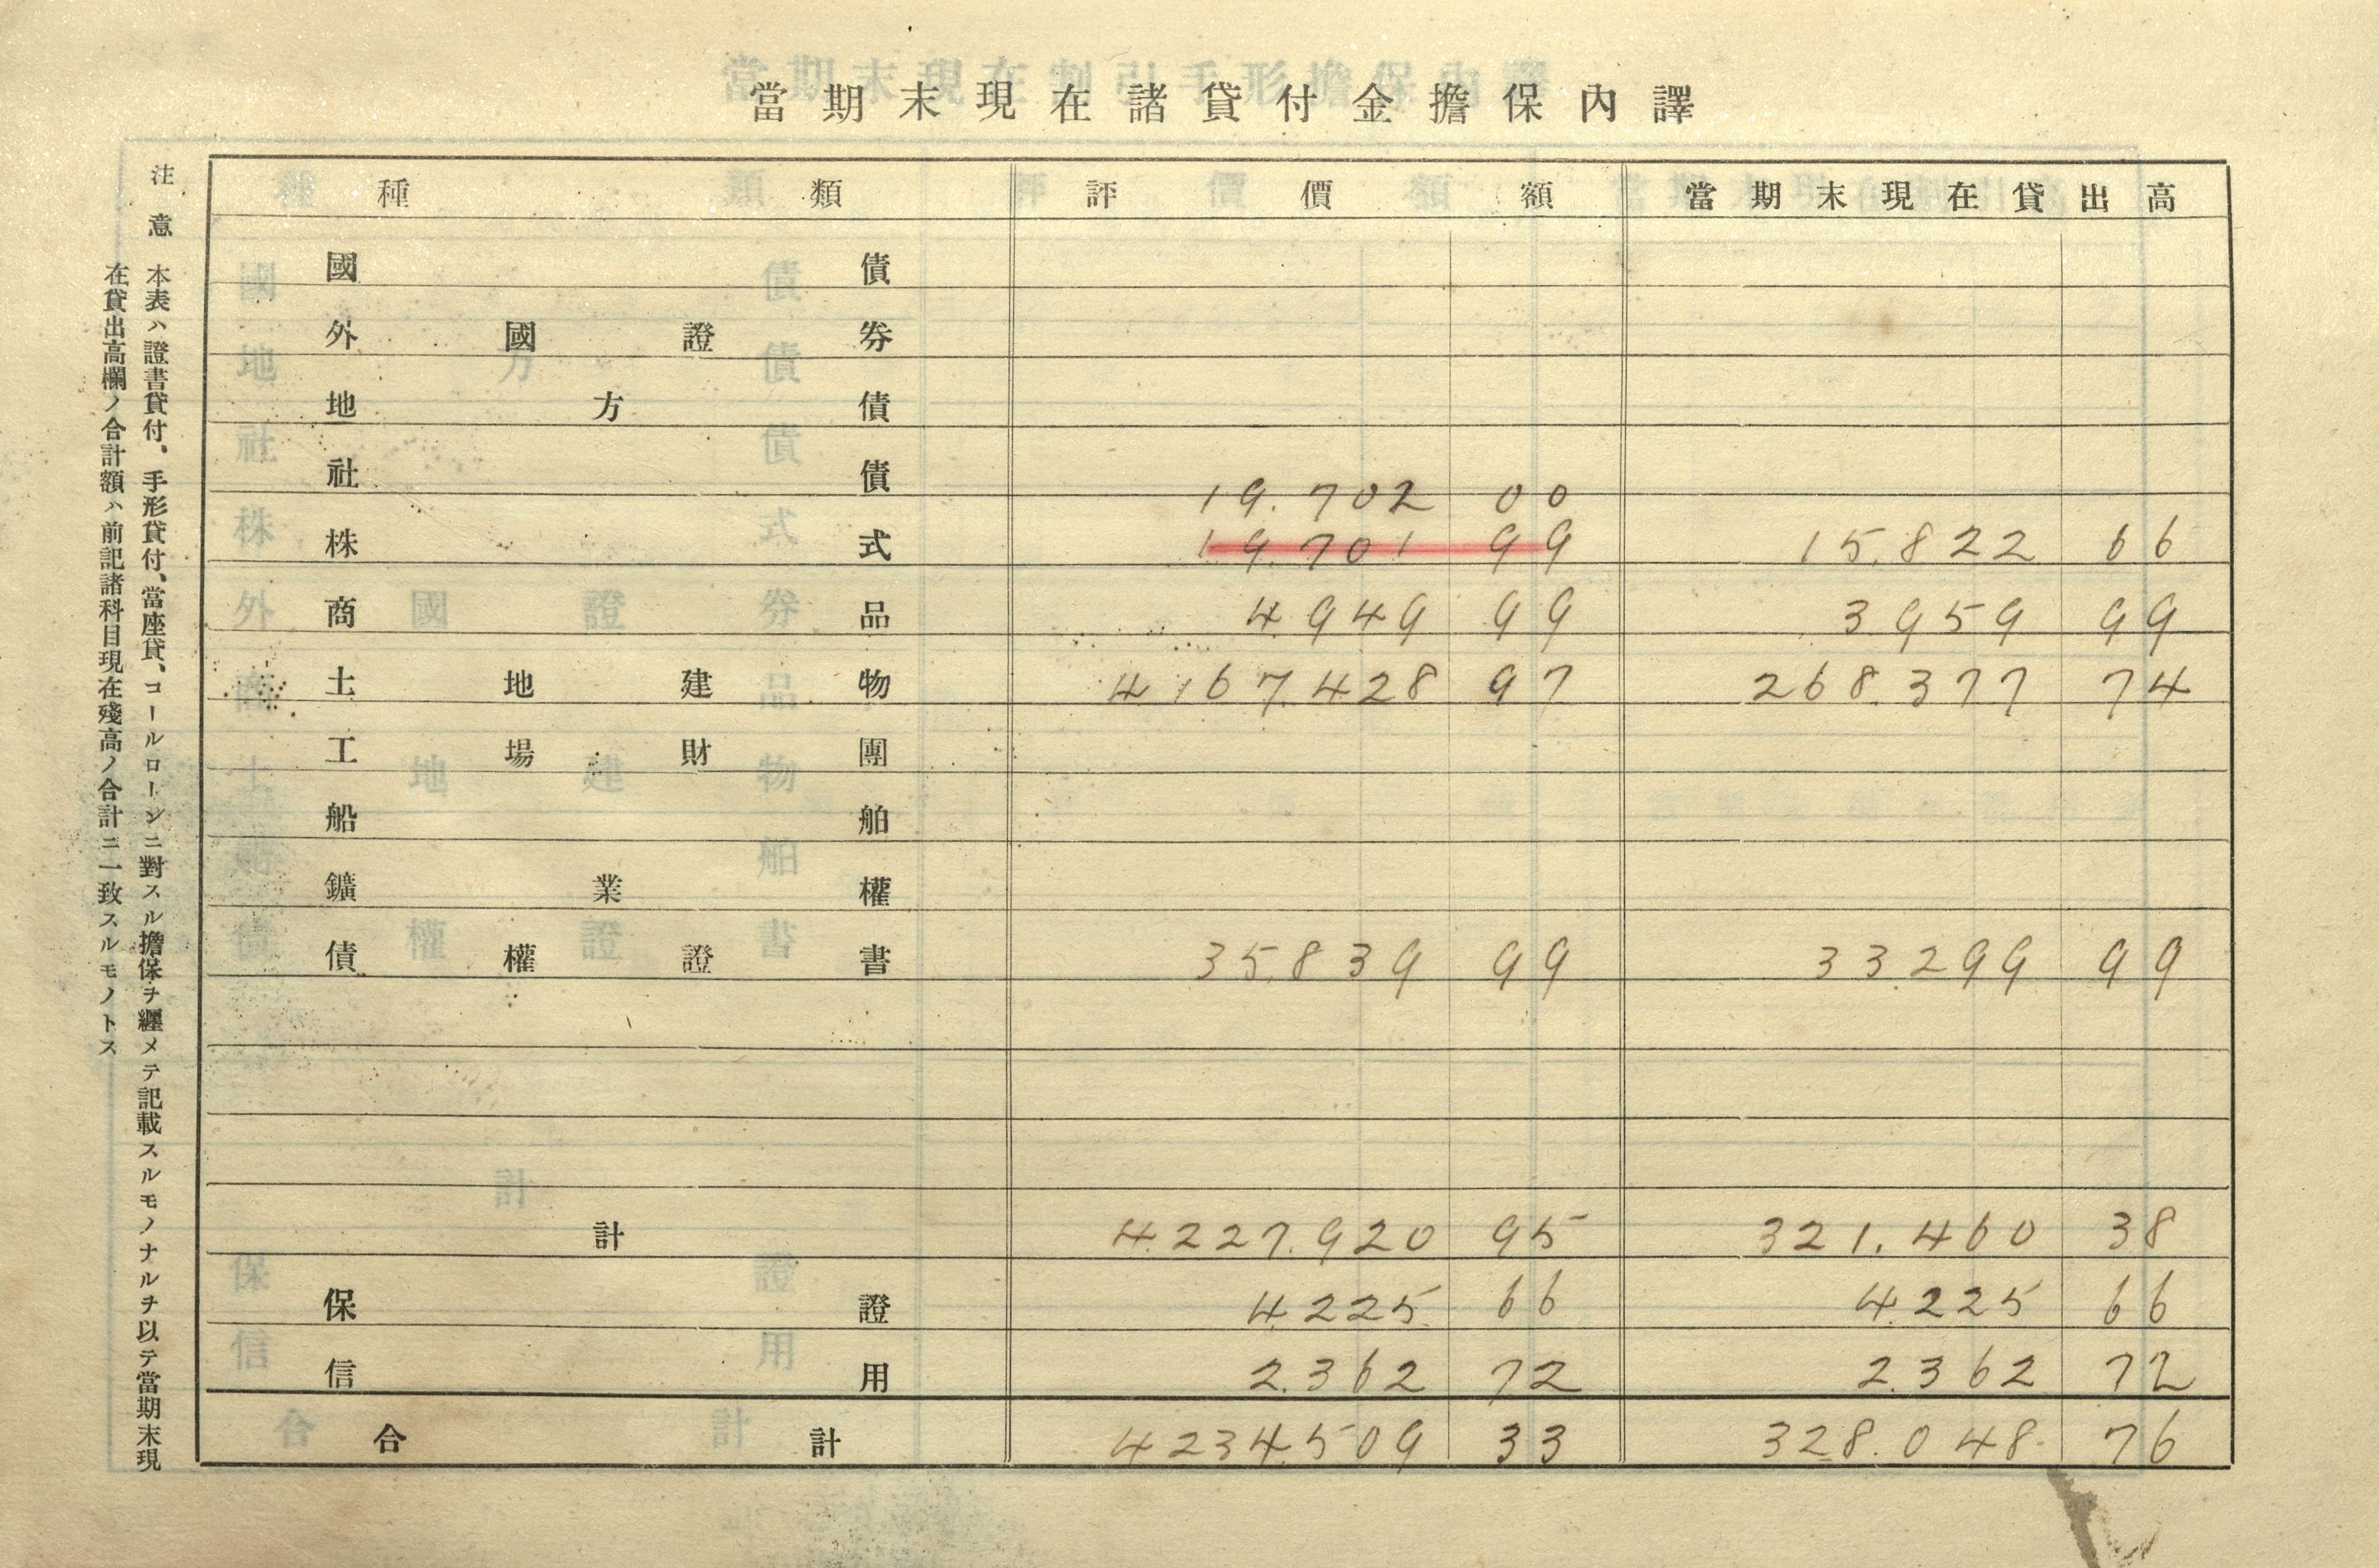 當期末現在諸貸付金擔保內譯
種類 評價額 當期末現在貸出高
國債
外國證券
地方債
社債
19.702 00
株式 19.701 99 15.822 66
商品 4.949 99 3.959 99
土地建物 4.167.428 97 268.377 74
工場財團
船舶
鑛業權
債權證書 35.839 99 33.299 99
計 4.227.920 95 321.460 38
保證 4.225 66 4.225 66
信用 2.362 72 2.362 72
合計 4234.509 33 328.048 76
注意 本表ハ證書貸付、手形貸付、當座貸、コールローンニ對スル擔保ヲ纒メテ記載スルモノナルヲ以テ當期末現
在貸出高欄ノ合計額ハ前記諸科目現在殘高ノ合計ニ一致スルモノトス